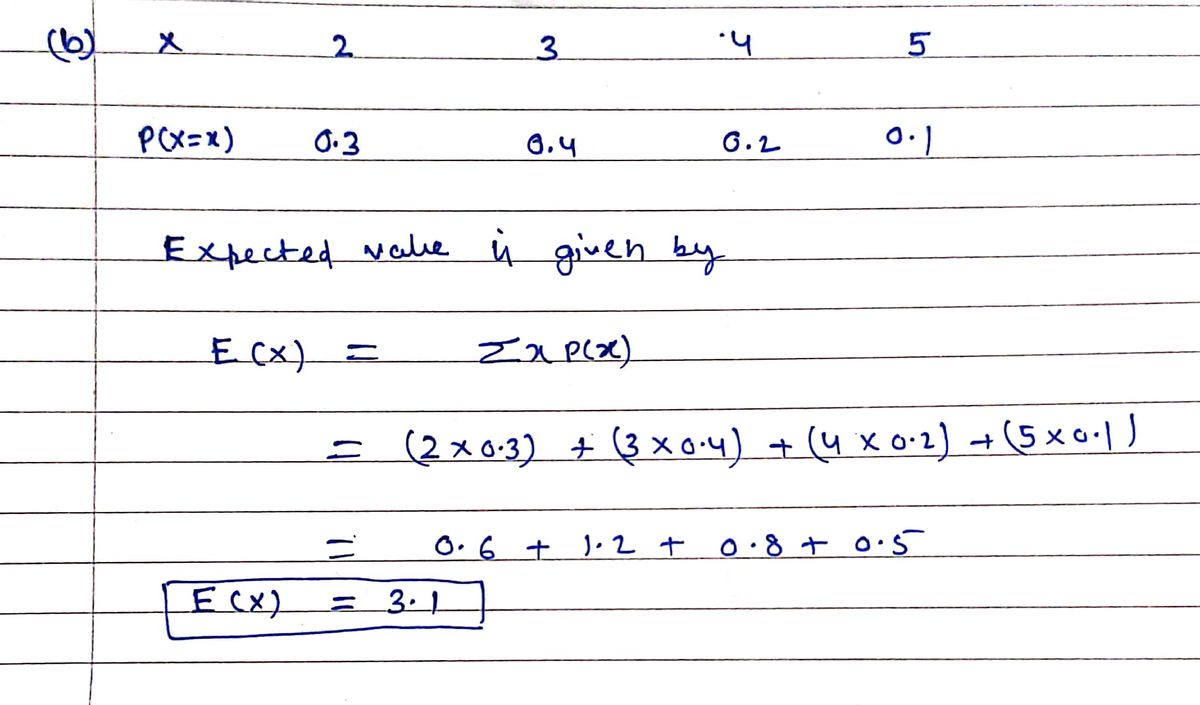 (b) x 2 3 4 5
P(X=x) 0.3 0.4 0.2 0.1
Expected value is given by
E(X) = Σx P(x)
= (2 × 0.3) + (3 × 0.4) + (4 × 0.2) + (5 × 0.1)
= 0.6 + 1.2 + 0.8 + 0.5
E(X) = 3.1